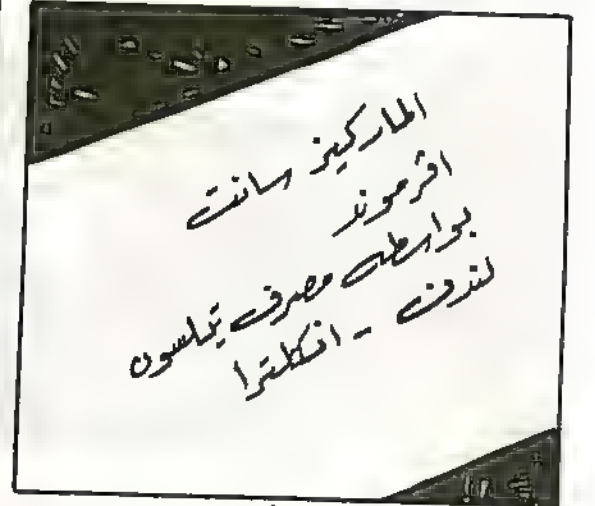 الماركيز سانت
افرموند
بواسطه مصرف تيلسون
لندن - انكلترا